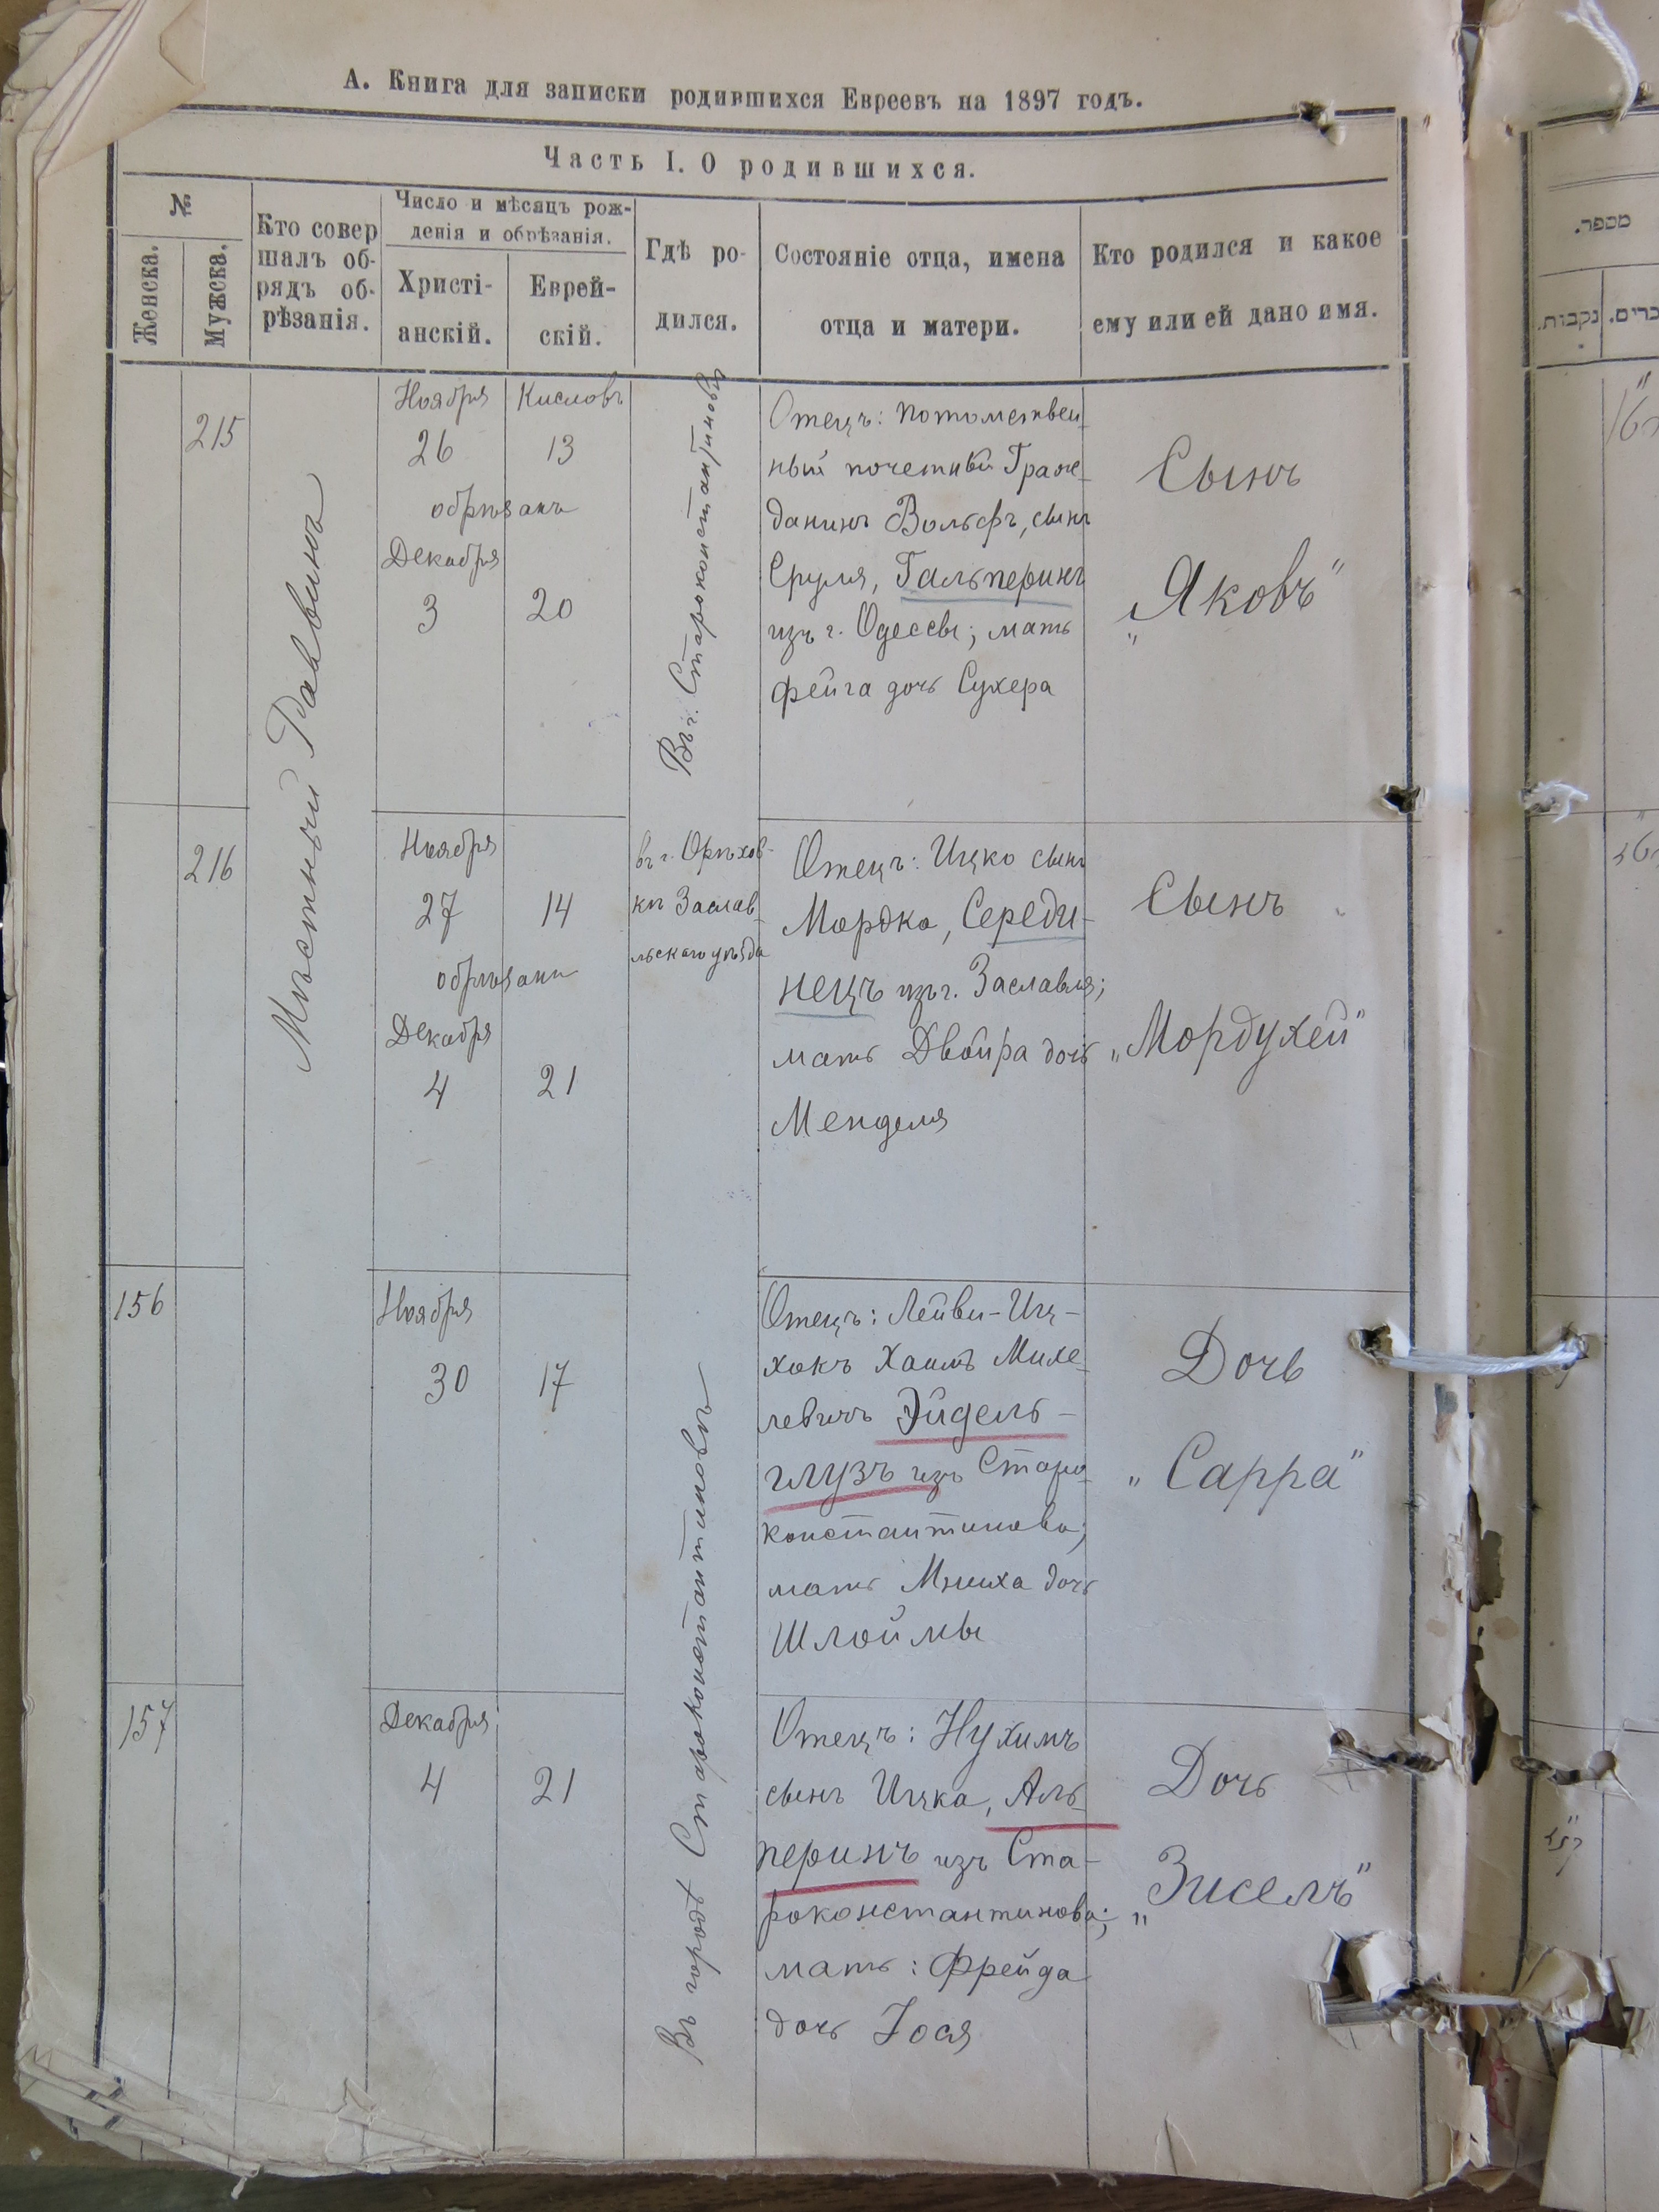 А. Книга для записки родившихся Евреевъ на 1897 годъ.
Часть I. О родившихся.
№
Женска.
Мужска.
Кто совер
шалъ об-
рядъ об-
рѣзанія.
Число и мѣсяцъ рож-
денія и обрѣзанія.
Христі-
анскій.
Еврей-
скій.
Гдѣ ро-
дился.
Состояніе отца, имена
отца и матери.
Кто родился и какое
ему или ей дано имя.
Мѣстный Раввинъ
215
Ноября
Кисловъ
26
13
обрѣзанъ
Декабря
3
20
Въ г. Староконстантиновѣ
Отецъ: потомствен-
ный почетный Граж-
данинъ Вольфъ, сынъ
Сруля, Гальперинъ
изъ г. Одессы; мать
Фейга дочь Сухера
Сынъ
„Яковъ"
216
Ноября
27
14
обрѣзанъ
Декабря
4
21
въ г. Орѣхов-
кѣ Заслав-
льскаго уѣзда
Отецъ: Ицко сынъ
Мордка, Середи-
нецъ изъ г. Заславля;
мать Двойра дочь
Менделя
Сынъ
„Мордухей"
156
Ноября
30
17
Въ городѣ Староконстантиновѣ
Отецъ: Лейви-Иц-
хокъ Хаимъ Михе-
левичъ Эйдель-
глузъ изъ Старо-
константинова;
мать Мниха дочь
Шлоймы
Дочь
„Сарра"
157
Декабря
4
21
Отецъ: Нухимъ
сынъ Ицка, Аль-
перинъ изъ Ста-
роконстантинова;
мать: Фрейда
дочь Іося
Дочь
„Зисель"
מספר.
נקבות.